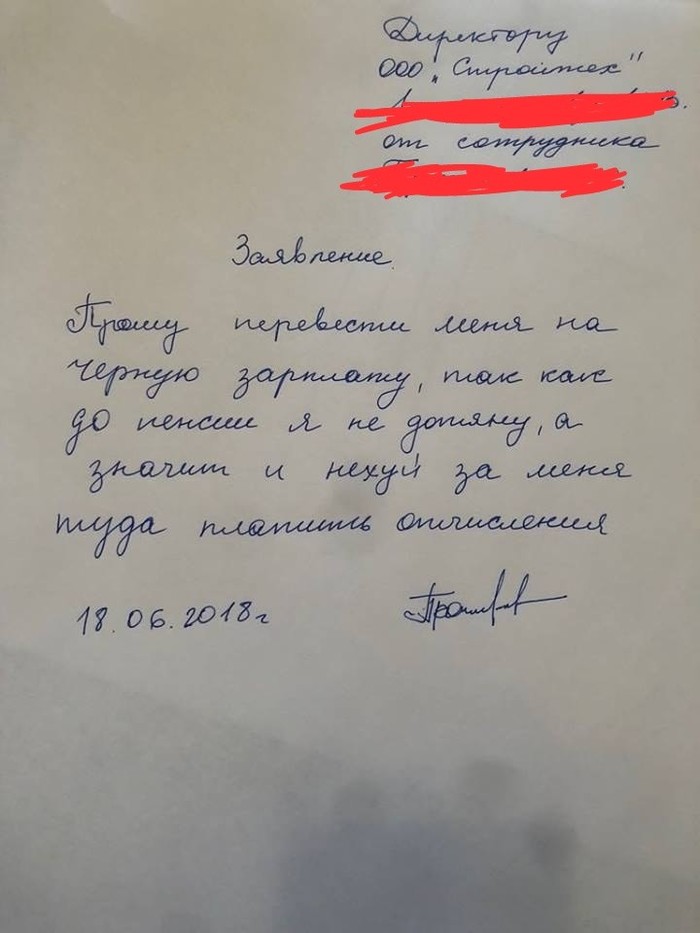 Директору
ООО "Стройтех"
от сотрудника
Заявление.
Прошу перевести меня на
черную зарплату, так как
до пенсии я не дотяну, а
значит и нехуй за меня
туда платить отчисления
18.06.2018г